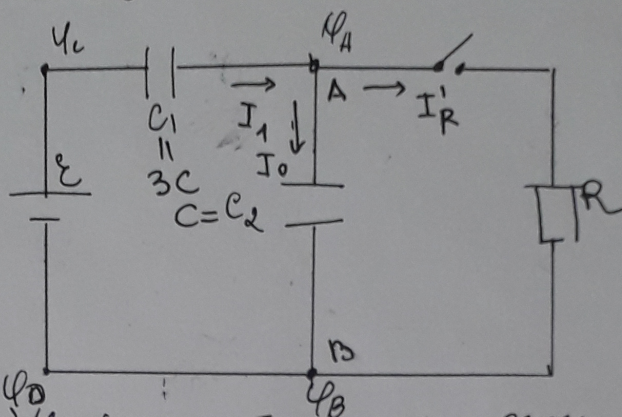 φc
φA
ε
C1
=
3C
I1
A
I'R
I0
C=C2
R
B
φD
φB